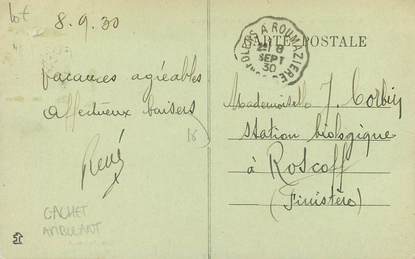 lot
8.9.30
vacances agréables
affectueux baisers
René
CACHET
AMBULANT
CARTE POSTALE
A ROUMAZIERE
8
SEPT
30
Mademoiselle J. Corbin
Station biologique
à
Roscoff
(Finistère)